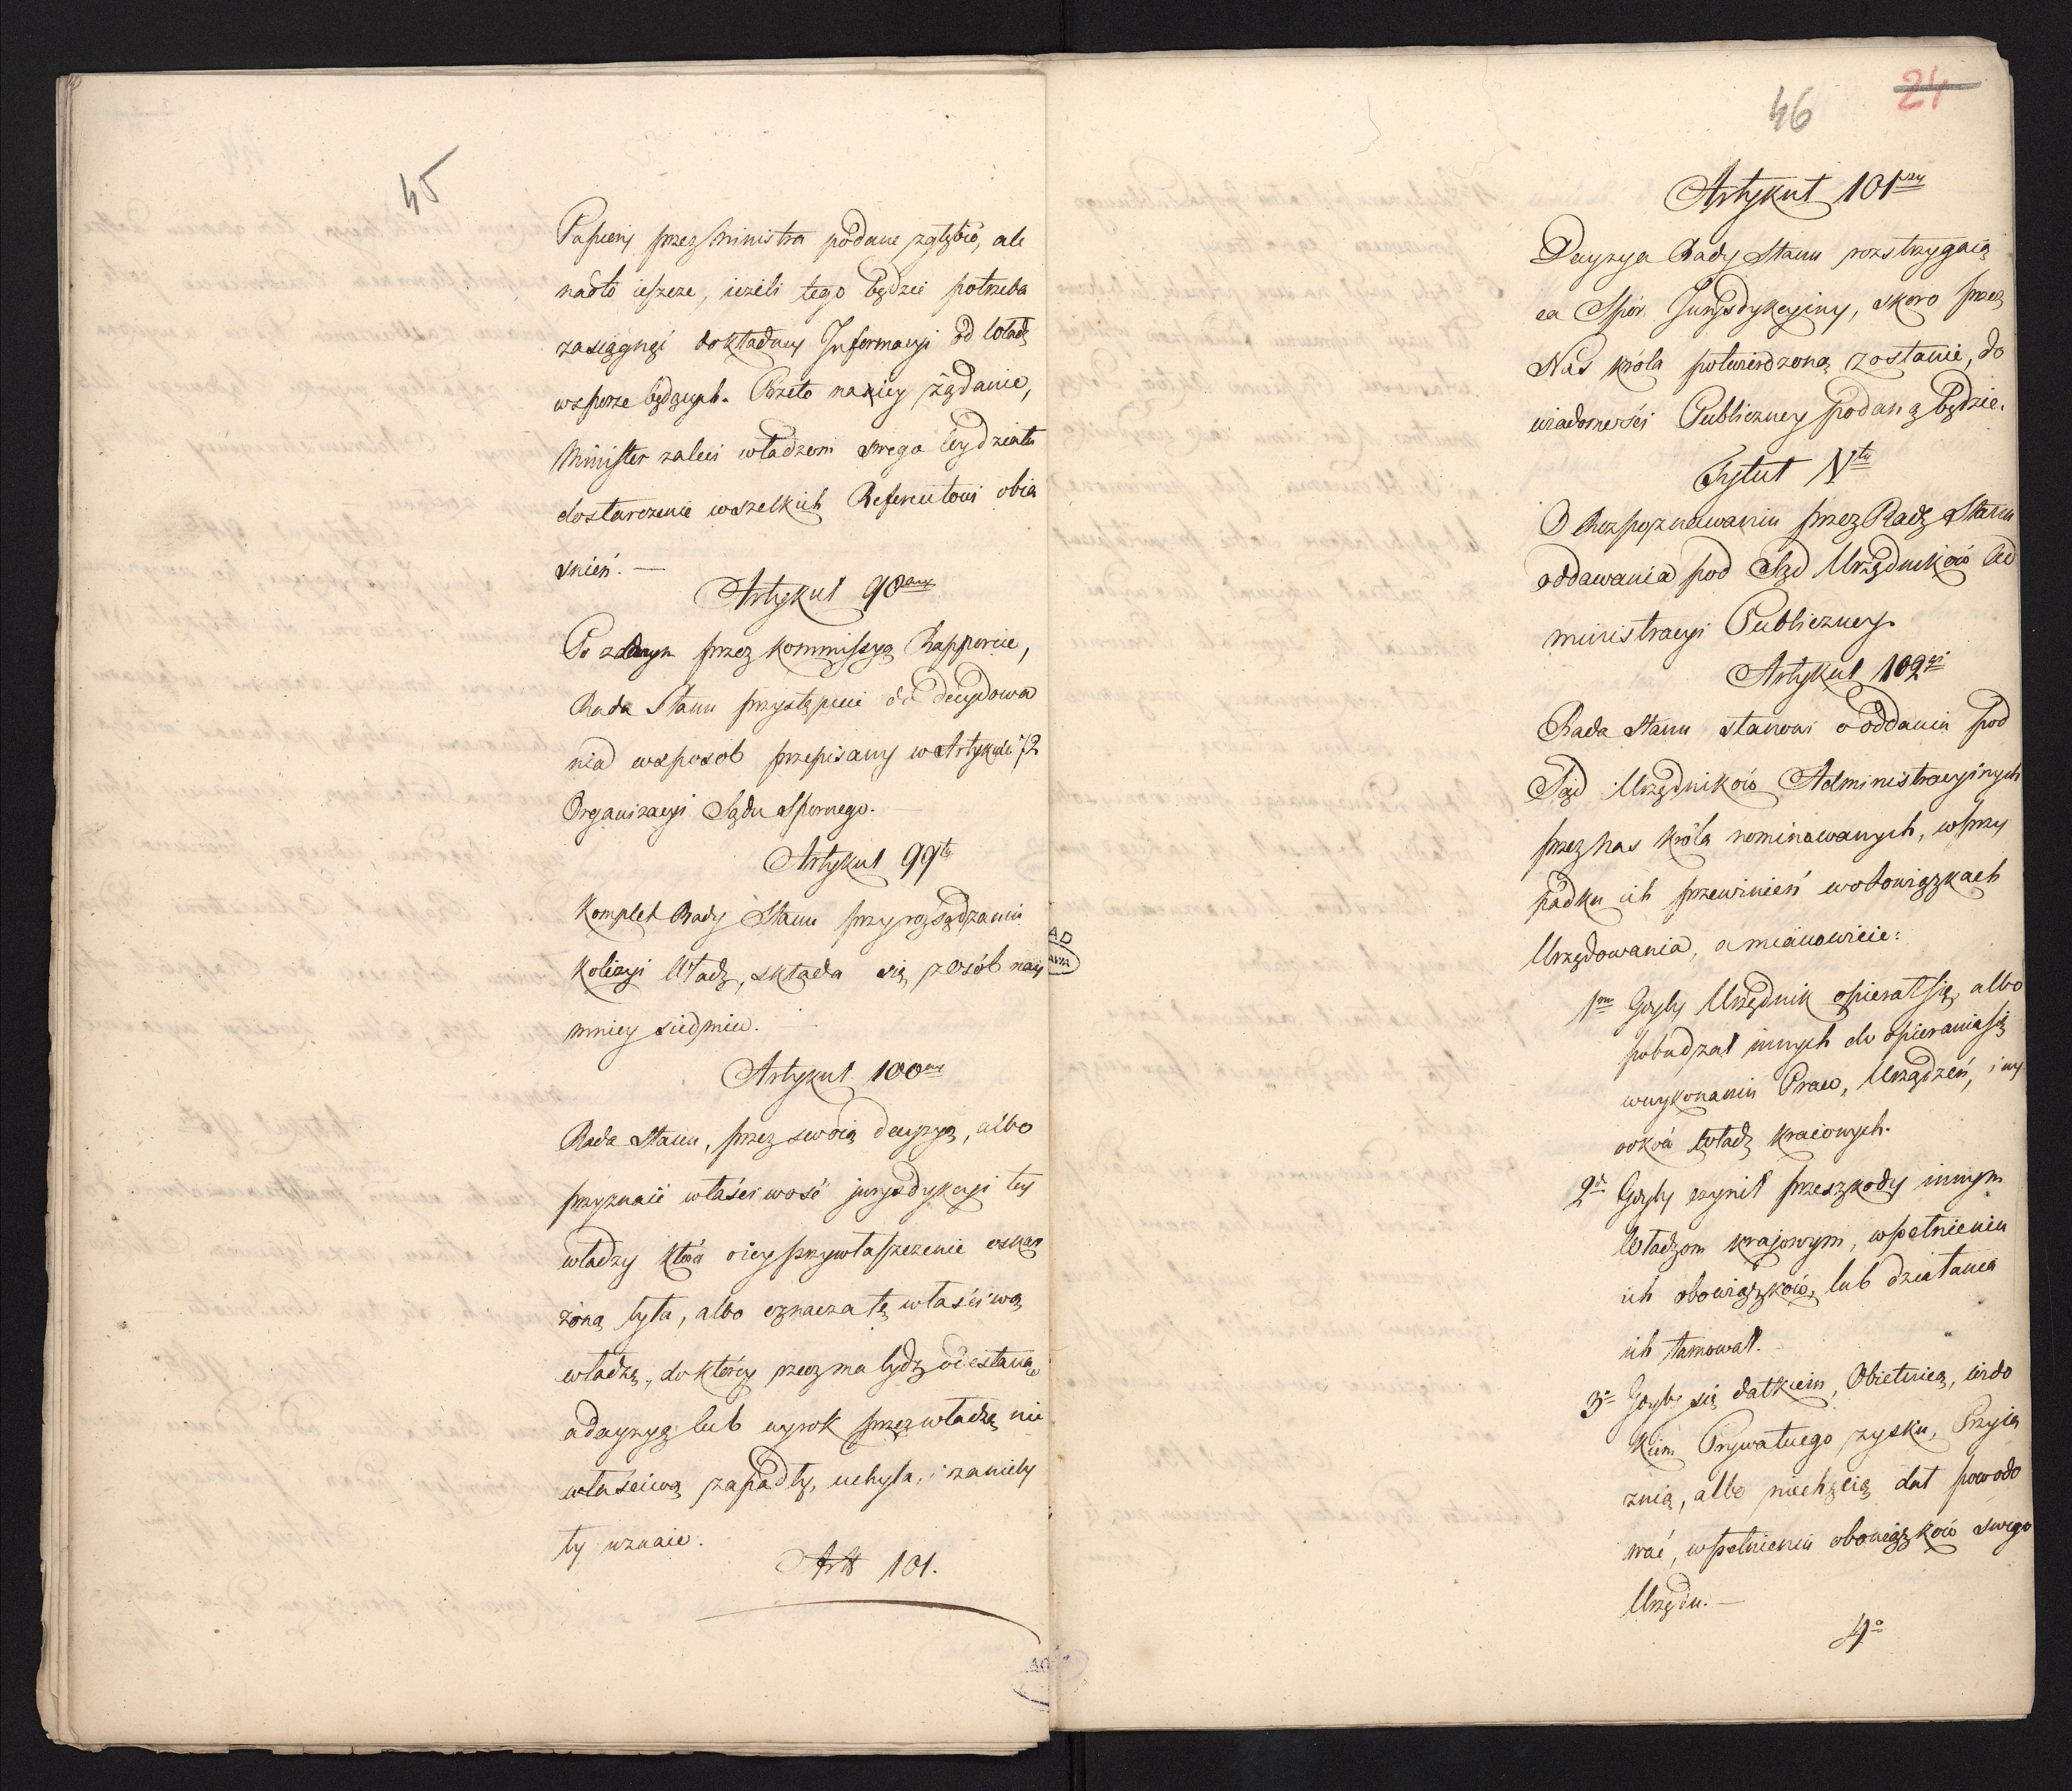 45
Papiery przez Ministra podane zgłębić, ale
nadto ieszcze, ieżeli tego będzie potrzeba
zasięgnąć dokładney Informacyi od Władz
wsporze będących. Przeto na iey żądanie,
Minister zaleci władzom swego Wydziału
dostarczenie wszelkich Referentowi obia
śnień. —
Artykuł 98my
Po zdanym przez kommissyą Rapporcie,
Rada Stanu przystępuie do decydowa
nia wsposob przepisany w Artykule 72
Organizacyi Sądu Spornego.
Artykuł 99ty
Komplet Rady Stanu przy rozsądzaniu
Kolizyi Władz, składa się z osób nay
mniey siedmiu.
Artykuł 100ny
Rada Stanu, przez swoią decyzyą, albo
przyznaie właściwość jurysdykcyi tey
władzy która o iey przywłaszczenie oskar
żoną była, albo oznacza tę właściwą
władzę, do którey rzecz ma bydź odesłana
a decyzyą lub wyrok przez władzę nie
właściwą zapadły, uchyla, i za nieby
ły uznaie.
Art 101.
46
24
Artykuł 101szy
Decyzya Rady Stanu rozstrzygaią
ca Spór Jurysdykcyiny, skoro przez
Nas Króla potwierdzoną zostanie, do
wiadomości Publiczney podaną będzie.
Tytuł Vty
O Rozpoznawaniu przez Radę Stanu
oddawania pod Sąd Urzędników Ad
ministracyi Publiczney.
Artykuł 102gi
Rada Stanu stanowi o oddaniu pod
Sąd Urzędników Administracyinych
przez nas Króla nominowanych, w przy
padku ich przewinień w obowiązkach
Urzędowania, a mianowicie:
1mo Gdyby Urzędnik opierał się, albo
pobudzał innych do opierania się
wwykonaniu Praw, Urządzeń, i wy
roków Władz kraiowych.
2do Gdyby czynił przeszkody innym
Władzom krajowym, w pełnieniu
ich obowiązków, lub działania
ich tamował.
3o Gdyby się datkiem, Obietnicą, wido
kiem Prywatnego zysku, Przyia
znią, albo niechęcią dał powodo
wać, w pełnieniu obowiązków swego
Urzędu. —
4o